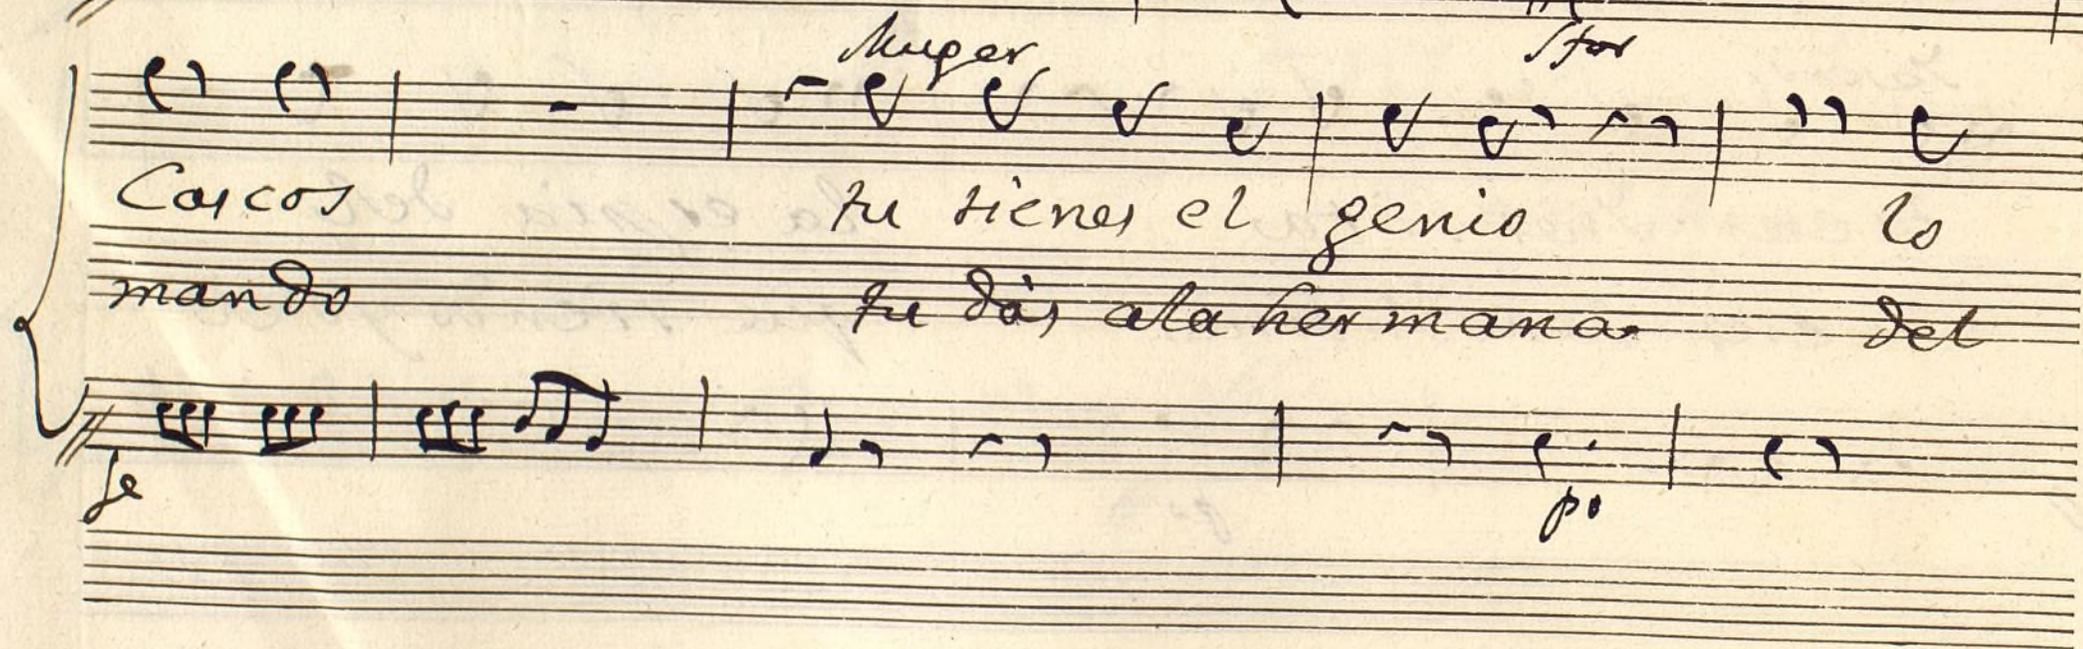 Muger
Cascos tu tienes el genio lo
mando tu dàs ala hermana del
fe
po